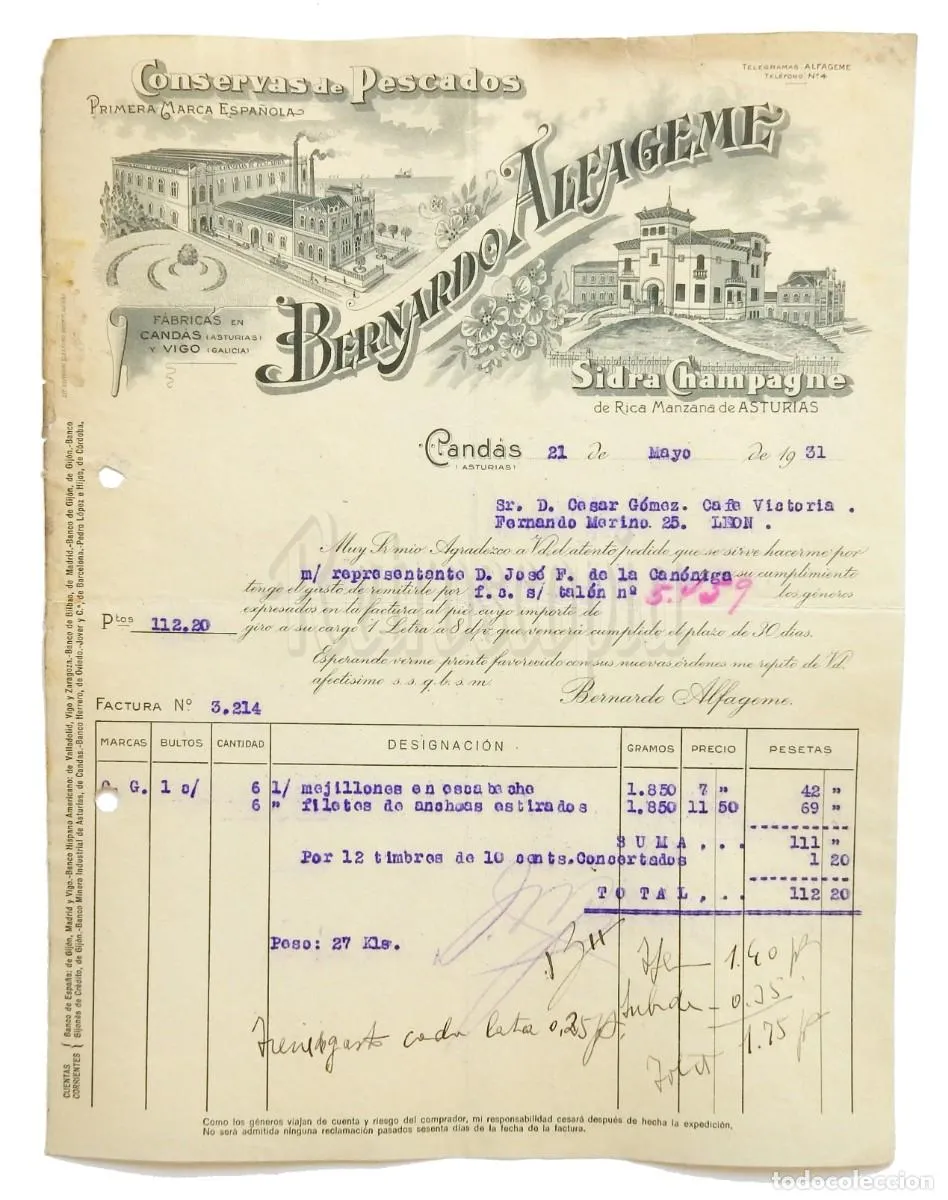 Conservas de Pescados
PRIMERA MARCA ESPAÑOLA
TELEGRAMAS ALFAGEME
TELÉFONO Nº 4
BERNARDO ALFAGEME
FÁBRICAS EN
CANDÁS (ASTURIAS)
Y VIGO (GALICIA)
Sidra Champagne
de Rica Manzana de ASTURIAS
Candás 21 de Mayo de 1931
(ASTURIAS)
Sr. D. Cesar Gómez. Cafe Victoria .
Fernando Merino 25. LEON .
Muy Sr. mio Agradezco a Vd. el atento pedido que se sirve hacerme por
m/ representante D. José F. de la Canóniga su cumplimiento
tengo el gusto de remitirle por f.c. s/ talón nº los géneros
expresados en la factura al pie cuyo importe de
Ptos 112.20 giro a su cargo 1 Letra a 8 d/v. que vencerá cumplido el plazo de 90 dias.
Esperando verme pronto favorecido con sus nuevas órdenes me repito de Vd.
afectisimo s. s. q. b. s. m.
Bernardo Alfageme.
FACTURA Nº 3.214
MARCAS BULTOS CANTIDAD DESIGNACIÓN GRAMOS PRECIO PESETAS
G. 1 c/ 6 1/ mejillones en escabeche 1.850 7 " 42 "
6 " filetes de anchoas estirados 1.850 11 50 69 "
SUMA... 111 "
Por 12 timbres de 10 cents. Concertados 1 20
TOTAL... 112 20
Peso: 27 Kls.
1.40
0.35
cada lata 0,25
1.75
Como los géneros viajan de cuenta y riesgo del comprador, mi responsabilidad cesará después de hecha la expedición,
No será admitida ninguna reclamación pasados sesenta días de la fecha de la factura.
CUENTAS CORRIENTES
Banco de España: de Gijón, Madrid y Vigo.-Banco Hispano Americano: de Valladolid, Vigo y Zaragoza.-Banco de Bilbao, de Madrid.-Banco de Gijón, de Gijón.-Banco
Gijonés de Crédito, de Gijón.-Banco Minero Industrial de Asturias, de Candas.-Banco Herrero, de Oviedo.-Jover y C.ª, de Barcelona.-Pedro López e Hijos, de Córdoba.
todocoleccion